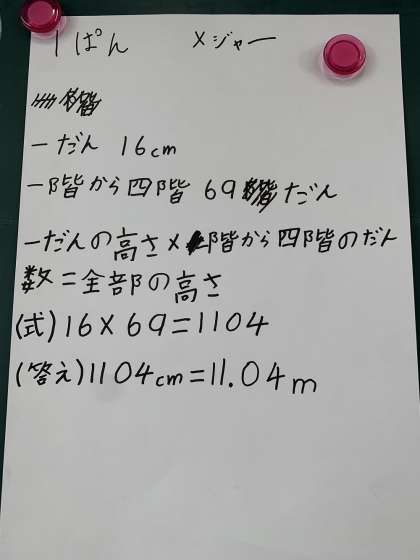 1ぱん メジャー
一だん 16cm
一階から四階 69だん
一だんの高さ×一階から四階のだん
数=全部の高さ
(式)16×69=1104
(答え)1104cm=11.04m